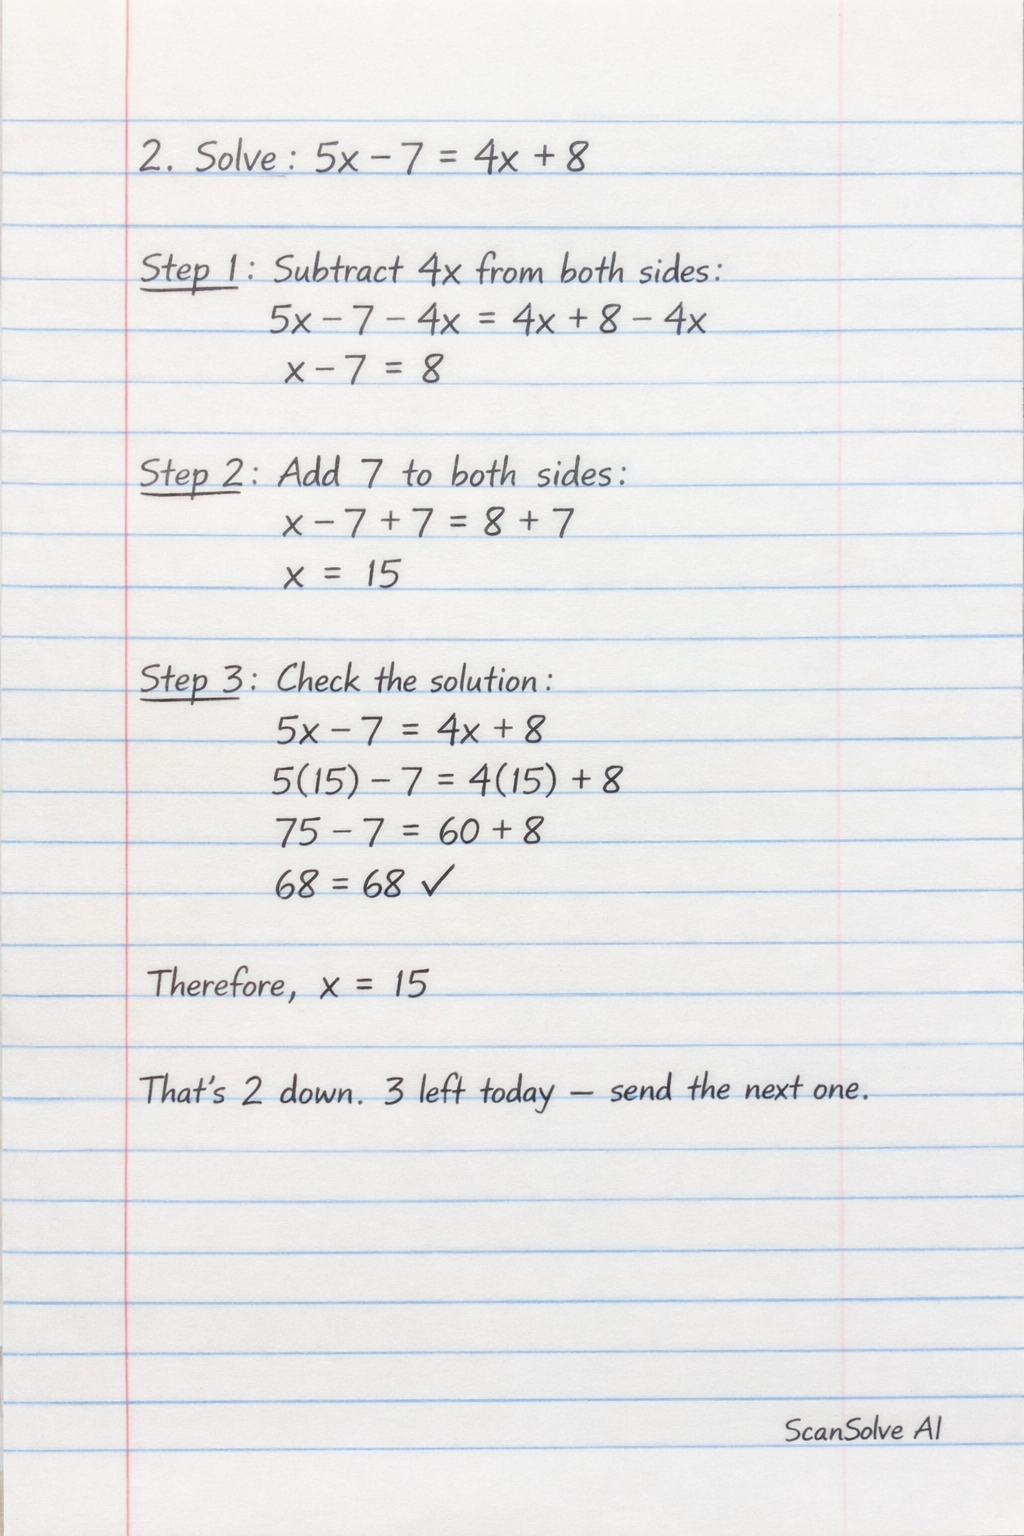 2. Solve: 5x - 7 = 4x + 8
Step 1: Subtract 4x from both sides:
5x - 7 - 4x = 4x + 8 - 4x
x - 7 = 8
Step 2: Add 7 to both sides:
x - 7 + 7 = 8 + 7
x = 15
Step 3: Check the solution:
5x - 7 = 4x + 8
5(15) - 7 = 4(15) + 8
75 - 7 = 60 + 8
68 = 68 ✓
Therefore, x = 15
That's 2 down. 3 left today — send the next one.
ScanSolve AI